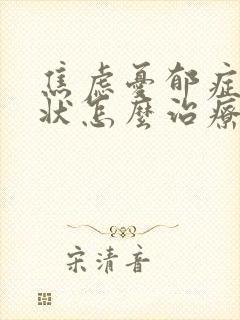 焦虑憂郁症
状怎麼治療
宋清音